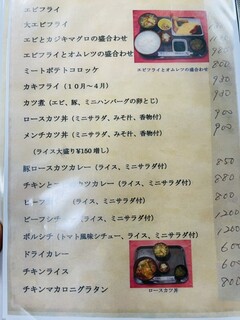 エビフライ
大エビフライ
エビとカジキマグロの盛合わせ
エビフライとオムレツの盛合わせ
エビフライとオムレツ盛合わせ
ミートポテトコロッケ
カキフライ（１０月〜４月）
カツ煮（エビ、豚、ミニハンバーグの卵とじ）
ロースカツ丼（ミニサラダ、みそ汁、香物付） 900
メンチカツ丼（ミニサラダ、みそ汁、香物付） 900
（ライス大盛り¥150増し）
豚ロースカツカレー（ライス、ミニサラダ付） 850
カツカレー（ライス、ミニサラダ付） 880
（ライス、ミニサラダ付） 800
ビーフシチ （ライス、ミニサラダ付） 1200
ボルシチ（トマト風味シチュー、ライス、ミニサラダ付） 1200
ドライカレー 600
チキンライス 600
チキンマカロニグラタン 800
ロースカツ丼